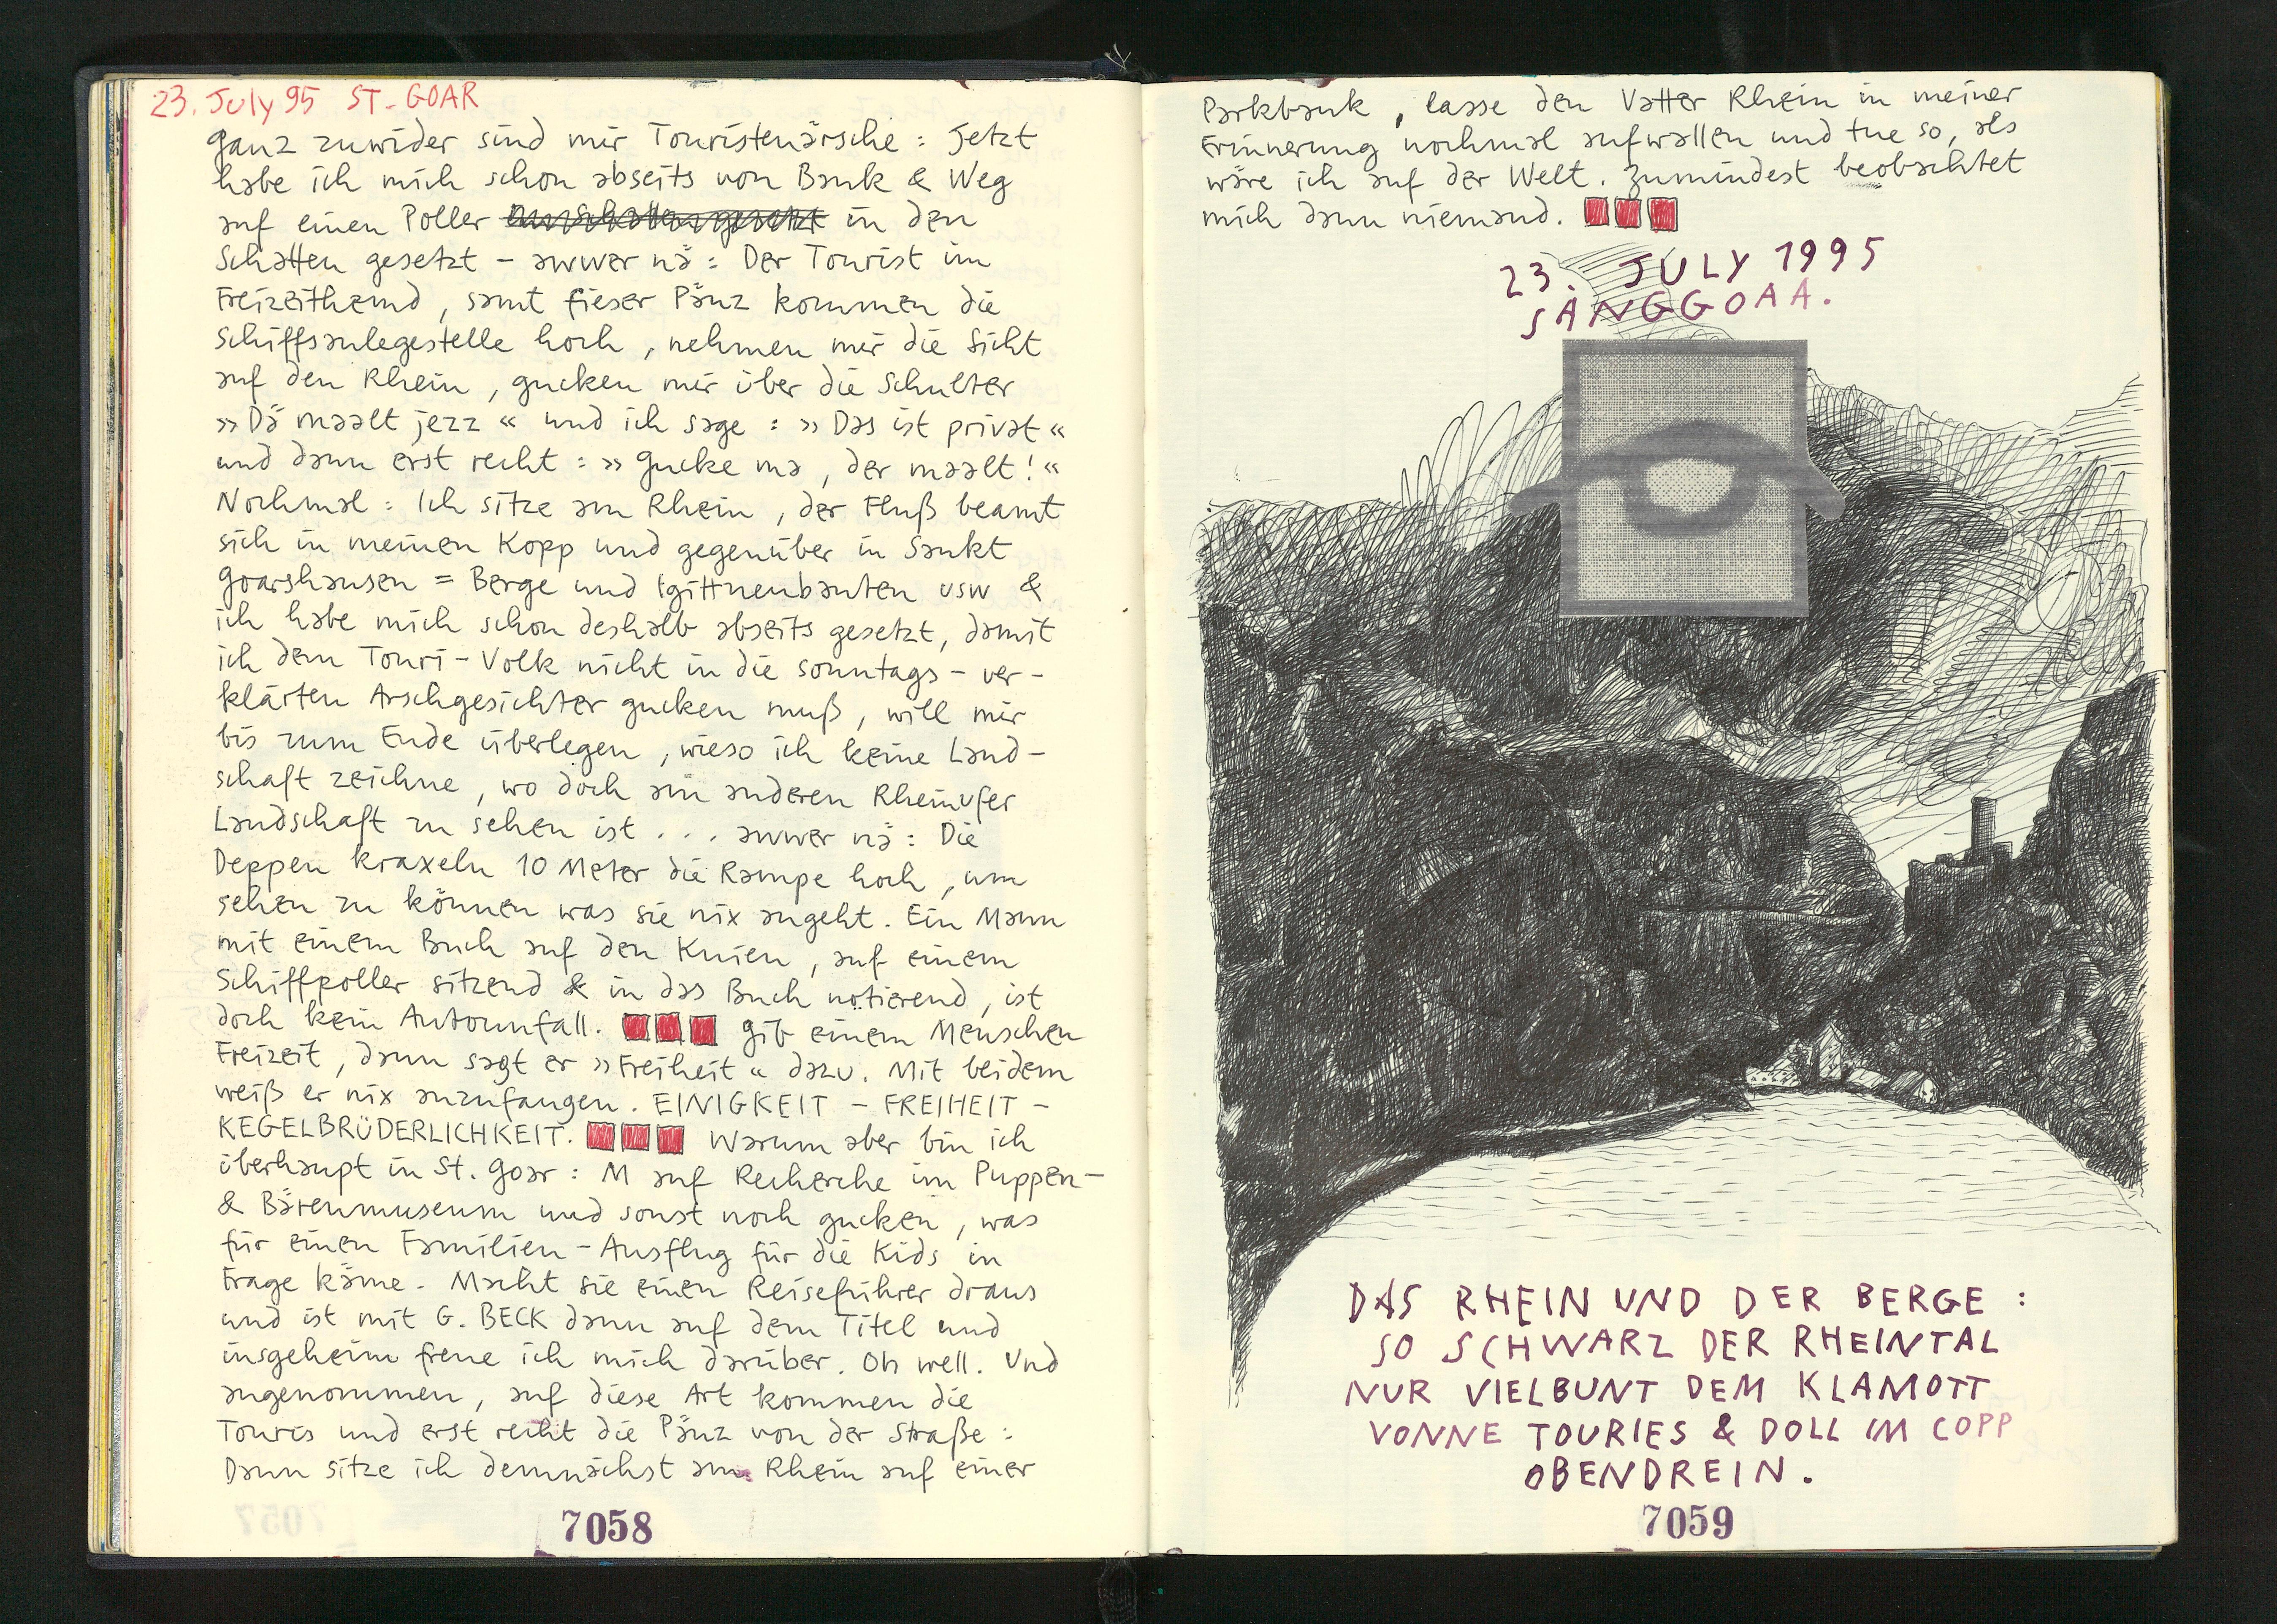 23. July 95 ST. GOAR
Ganz zuwider sind mir Touristenärsche : Jetzt
habe ich mich schon abseits von Bank & Weg
auf einen Poller in den
Schatten gesetzt – awwer nä : Der Tourist im
Freizeithemd, samt fieser Pänz kommen die
Schiffsanlegestelle hoch, nehmen mir die Sicht
auf den Rhein, gucken mir über die Schulter
»Dä maalt jezz« und ich sage : »Das ist privat«
und dann erst recht : »Gucke ma, der maalt!«
Nochmal : Ich sitze am Rhein, der Fluß beamt
sich in meinen Kopp und gegenüber in Sankt
Goarshausen = Berge und Rittnenbauten usw &
ich habe mich schon deshalb abseits gesetzt, damit
ich dem Touri-Volk nicht in die sonntags-ver-
klärten Arschgesichter gucken muß, will mir
bis zum Ende überlegen, wieso ich keine Land-
schaft zeichne, wo doch am anderen Rheinufer
Landschaft zu sehen ist ... awwer nä : Die
Deppen kraxeln 10 Meter die Rampe hoch, um
sehen zu können was sie nix angeht. Ein Mann
mit einem Buch auf den Knien, auf einem
Schiffpoller sitzend & in das Buch notierend, ist
doch kein Autounfall. Gib einem Menschen
Freizeit, dann sagt er »Freiheit« dazu. Mit beidem
weiß er nix anzufangen. EINIGKEIT – FREIHEIT –
KEGELBRÜDERLICHKEIT. Warum aber bin ich
überhaupt in St. Goar : M auf Recherche im Puppen-
& Bärenmuseum und sonst noch gucken, was
für einen Familien-Ausflug für die Kids in
Frage käme. Macht sie einen Reiseführer draus
und ist mit G. BECK dann auf dem Titel und
insgeheim freue ich mich darüber. Oh well. Und
angenommen, auf diese Art kommen die
Touris und erst recht die Pänz von der Straße :
Dann sitze ich demnächst am Rhein auf einer
7058
Parkbank, lasse den Vatter Rhein in meiner
Erinnerung nochmal aufwallen und tue so, als
wäre ich auf der Welt. Zumindest beobachtet
mich dann niemand.
23. JULY 1995
SANGGOAA.
DAS RHEIN UND DER BERGE :
SO SCHWARZ DER RHEINTAL
NUR VIELBUNT DEM KLAMOTT
VONNE TOURIES & DOLL IM COPP
OBENDREIN.
7059